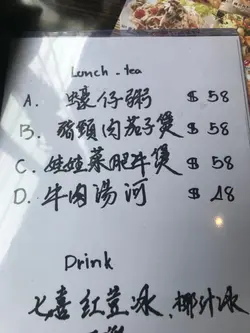 Lunch - tea
A. 蠔仔粥 $58
B. 豬頸肉茄子煲 $58
C. 娃娃菜肥牛煲 $58
D. 牛肉湯河 $48
Drink
七喜 紅荳冰、椰汁冰